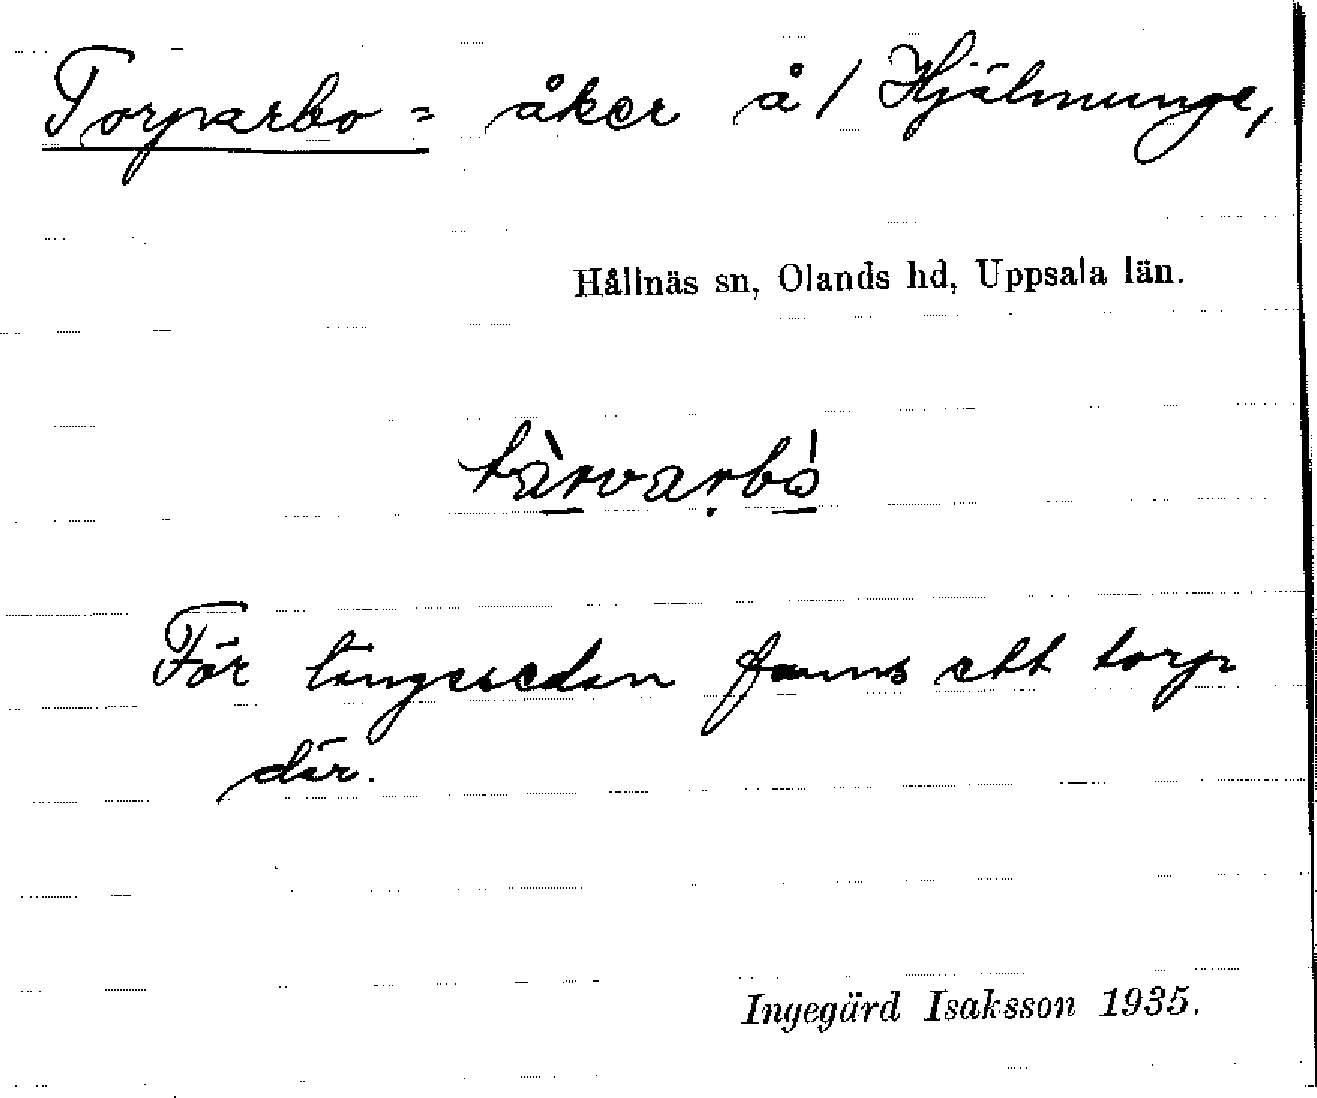 Torparbo = åker å / Hjälmunge,
Hållnäs sn, Olands hd, Uppsala län.
För längesedan fanns ett torp
där.
Ingegärd Isaksson 1935.